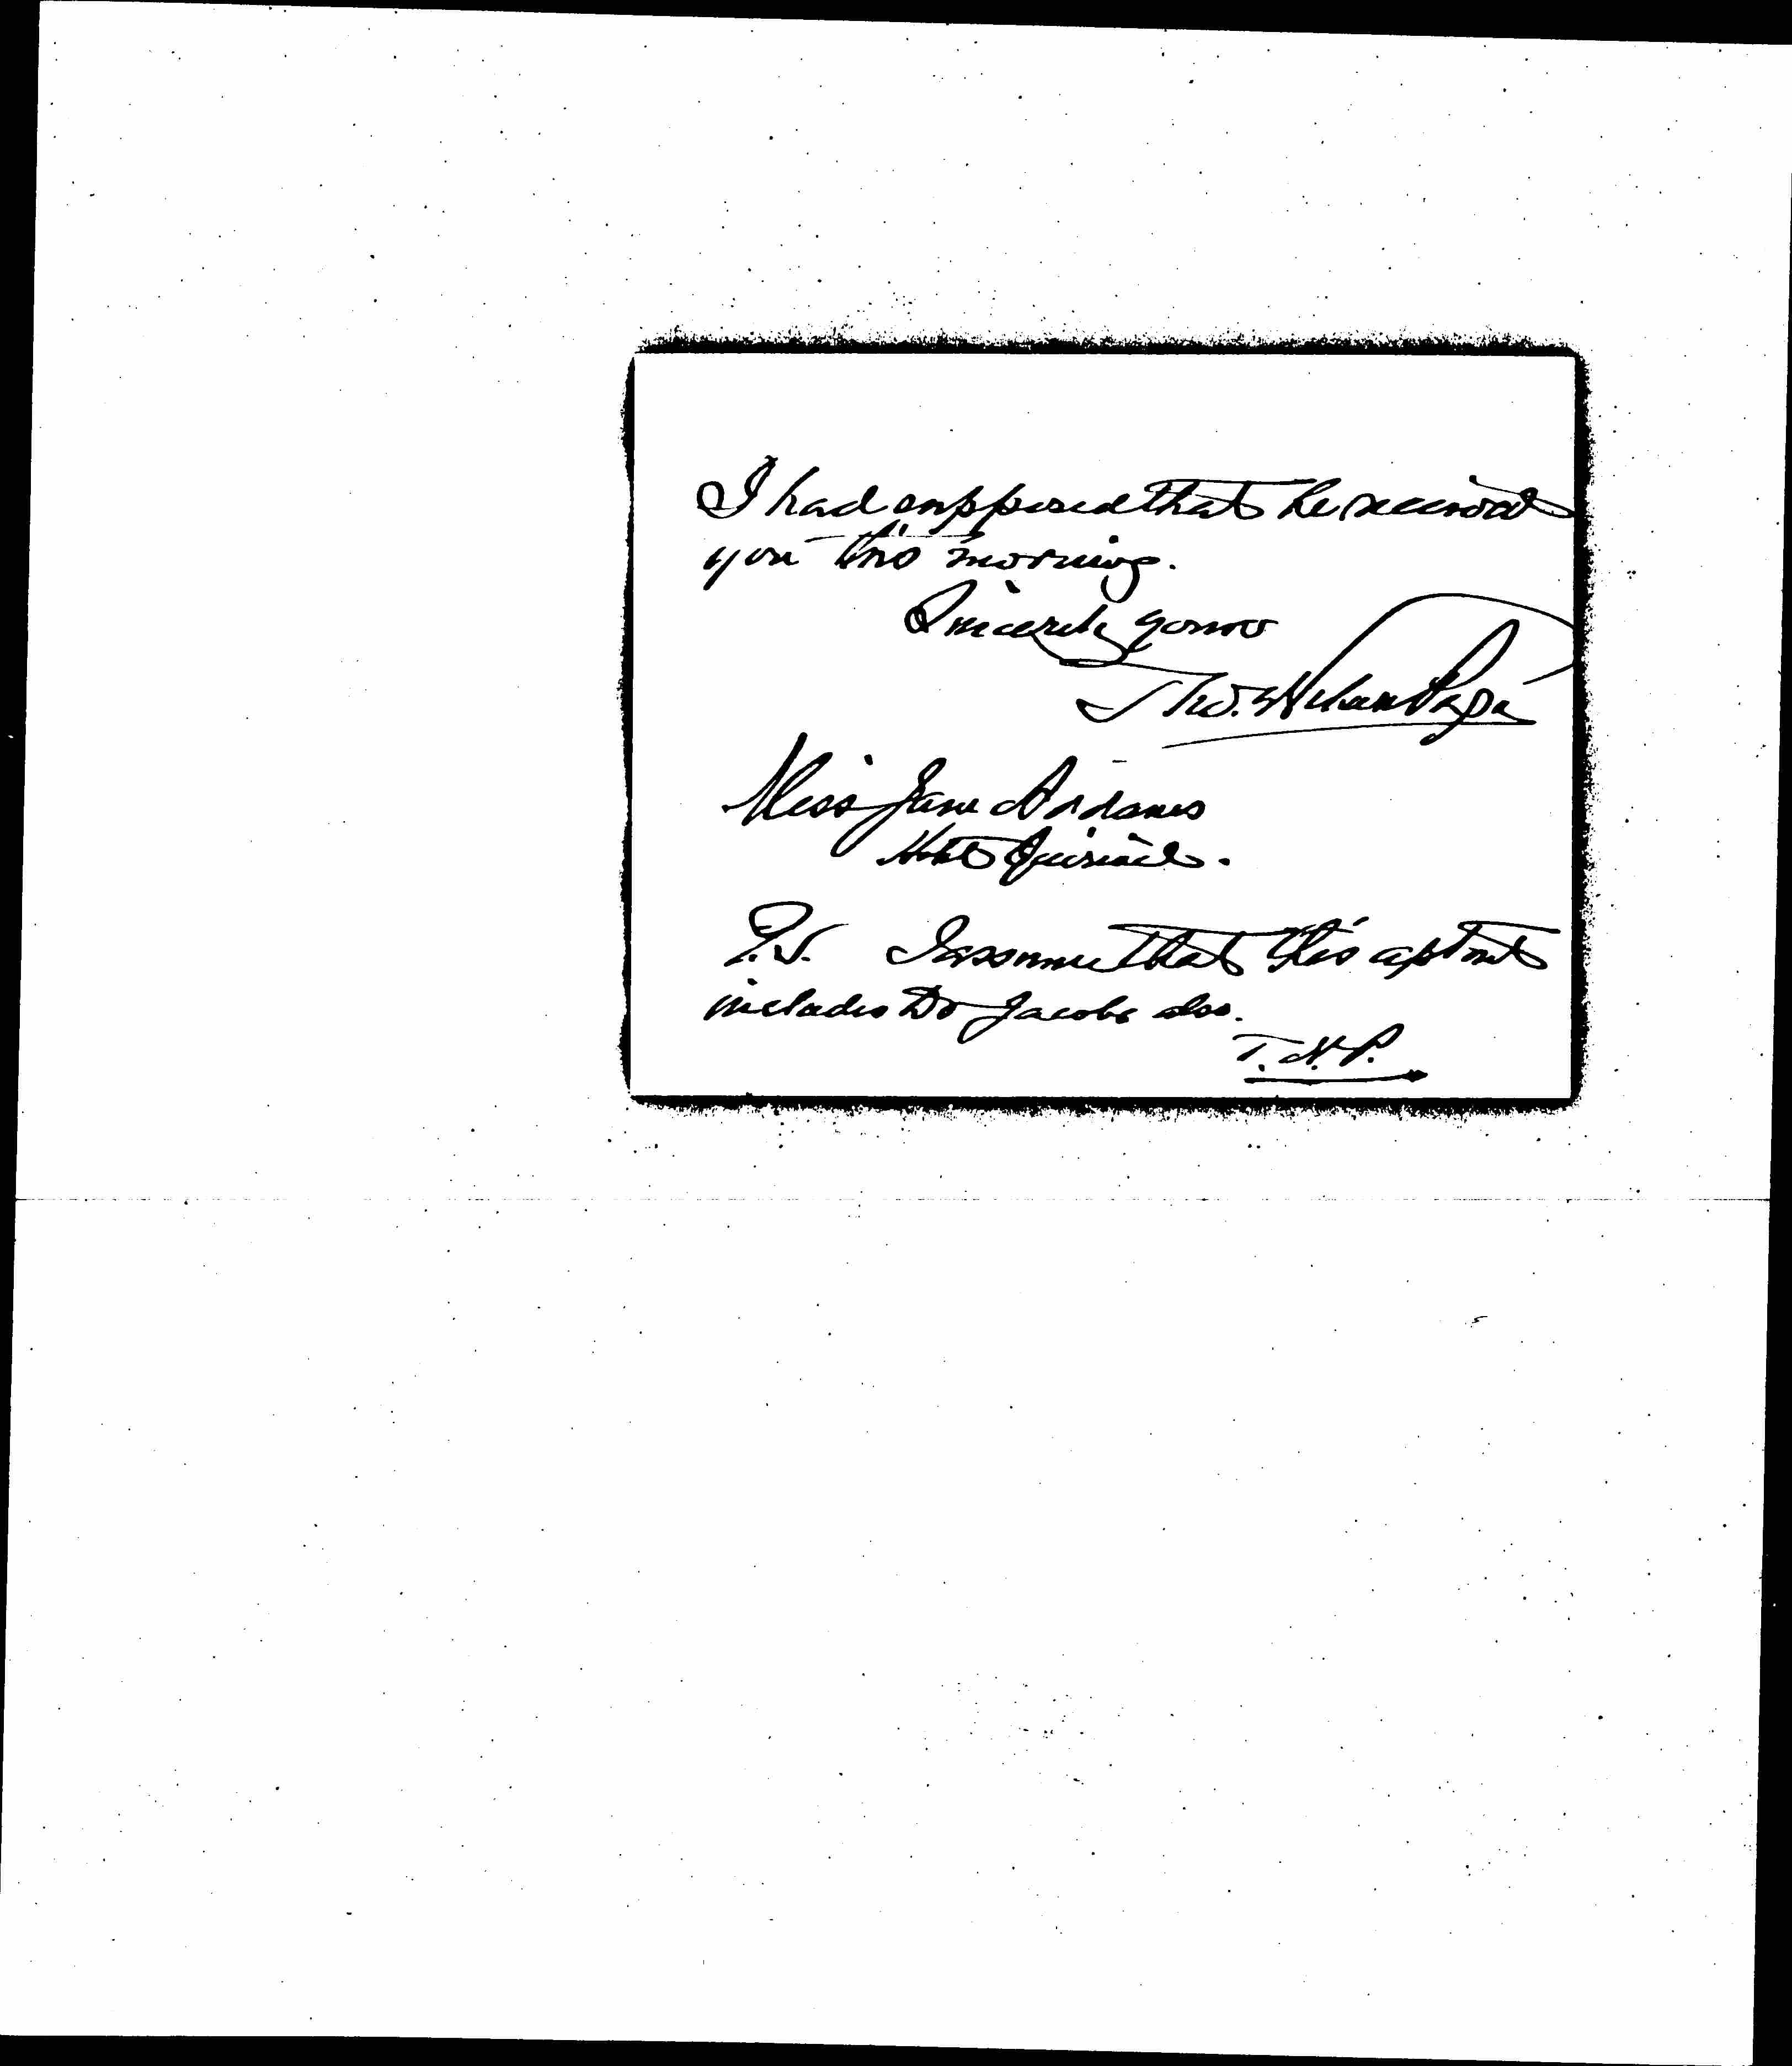 I had supposed that he received
you this morning.
Sincerely yours
Tho. Nelson Page
Miss Jane Addams
Hotel Quirinal.
P.S. I assume that this aptmt
includes Dr Jacobs also.
T. N. P.